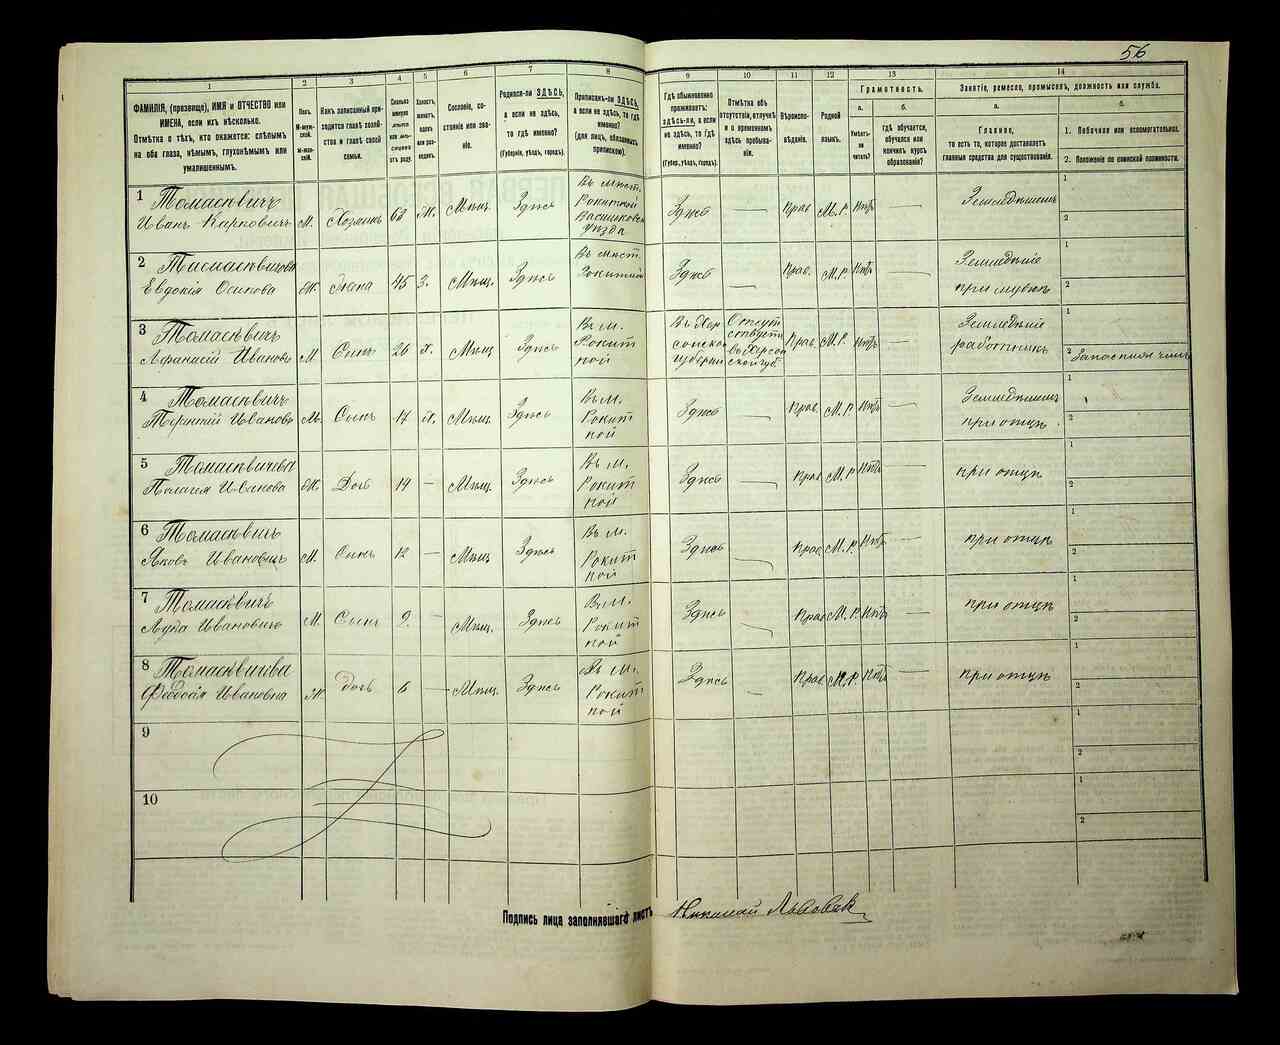 56
1
2
3
4
5
6
7
8
9
10
11
12
13
14
ФАМИЛІЯ, (прозвище), ИМЯ и ОТЧЕСТВО или
ИМЕНА, если ихъ нѣсколько.
Отмѣтка о тѣхъ, кто окажется: слѣпымъ
на оба глаза, нѣмымъ, глухонѣмымъ или
умалишеннымъ.
Полъ.
М-муж-
ской.
Ж-жен-
скій.
Какъ записанный при-
ходится главѣ хозяй-
ства и главѣ своей
семьи.
Сколько
минуло
лѣтъ
или мѣся-
цевъ
отъ роду.
Холостъ,
женатъ,
вдовъ
или раз-
веденъ.
Сословіе, со-
стояніе или зва-
ніе.
Родился-ли ЗДѢСЬ,
а если не здѣсь,
то гдѣ именно?
(Губернія, уѣздъ, городъ).
Приписанъ-ли ЗДѢСЬ,
а если не здѣсь, то гдѣ
именно?
(для лицъ, обязанныхъ
припискою).
Гдѣ обыкновенно
проживаетъ:
здѣсь-ли, а если
не здѣсь, то гдѣ
именно?
(Губер., уѣздъ, городъ).
Отмѣтка объ
отсутствіи, отлучкѣ
и о временномъ
здѣсь пребыва-
ніи.
Вѣроиспо-
вѣданіе.
Родной
языкъ.
Грамотность.
а.
б.
Умѣетъ-
ли
читать?
гдѣ обучается,
обучался или
кончилъ курсъ
образованія?
Занятіе, ремесло, промыселъ, должность или служба.
а.
б.
Главное,
то есть то, которое доставляетъ
главныя средства для существованія.
1. Побочное или вспомогательное.
2. Положеніе по воинской повинности.
1 Томасевичъ
Иванъ Карповичъ М. Хозяинъ 63 Ж. Мѣщ. Здѣсь
Въ мѣст.
Рокитной
Васильков.
уѣзда
Здѣсь — Прав. М.Р. Нѣтъ — 1
2
2
Евдокія Осипова Ж. Жена 45 З. Мѣщ. Здѣсь
Въ мѣст.
Рокитной
Здѣсь — Прав. М.Р. Нѣтъ —
Земледѣліе
при мужѣ
1
2
3 Томасевичъ
Афанасій Ивановъ М Сынъ 26 Х. Мѣщ Здѣсь
Въ м.
Рокит
ной
Въ Хер
сонской
губерніи
Отсут
ствуетъ
въ Херсон
ской губ.
Прав. М.Р. Нѣтъ —
Земледѣліе
работникъ
1
2
4 Томасевичъ
Терентій Ивановъ М. Сынъ 17 Х. Мѣщ. Здѣсь
Въ м.
Рокит
ной
Здѣсь — Прав. М.Р. Нѣтъ —
при отцѣ
1
2
5 Томасевичева
Пелагея Иванова Ж. Дочь 14 — Мѣщ. Здѣсь
Въ м.
Рокит
ной
Здѣсь — Прав М.Р. Нѣтъ —
при отцѣ
1
2
6 Томасевичъ
Яковъ Ивановичъ М. Сынъ 12 — Мѣщ. Здѣсь
Въ м.
Рокит
ной
Здѣсь — Прав М.Р. Нѣтъ —
при отцѣ
1
2
7 Томасевичъ
Лука Ивановичъ М. Сынъ 9. — Мѣщ. Здѣсь
Въ м.
Рокит
ной
Здѣсь — Прав М.Р. Нѣтъ —
при отцѣ
1
2
8 Томасевичева
Федосія Ивановна Ж Дочь 6 — Мѣщ. Здѣсь
Въ м.
Рокит
ной
Здѣсь — Прав. М.Р Нѣтъ —
при отцѣ
1
2
9
1
2
10
1
2
Подпись лица заполнявшаго листъ Николай